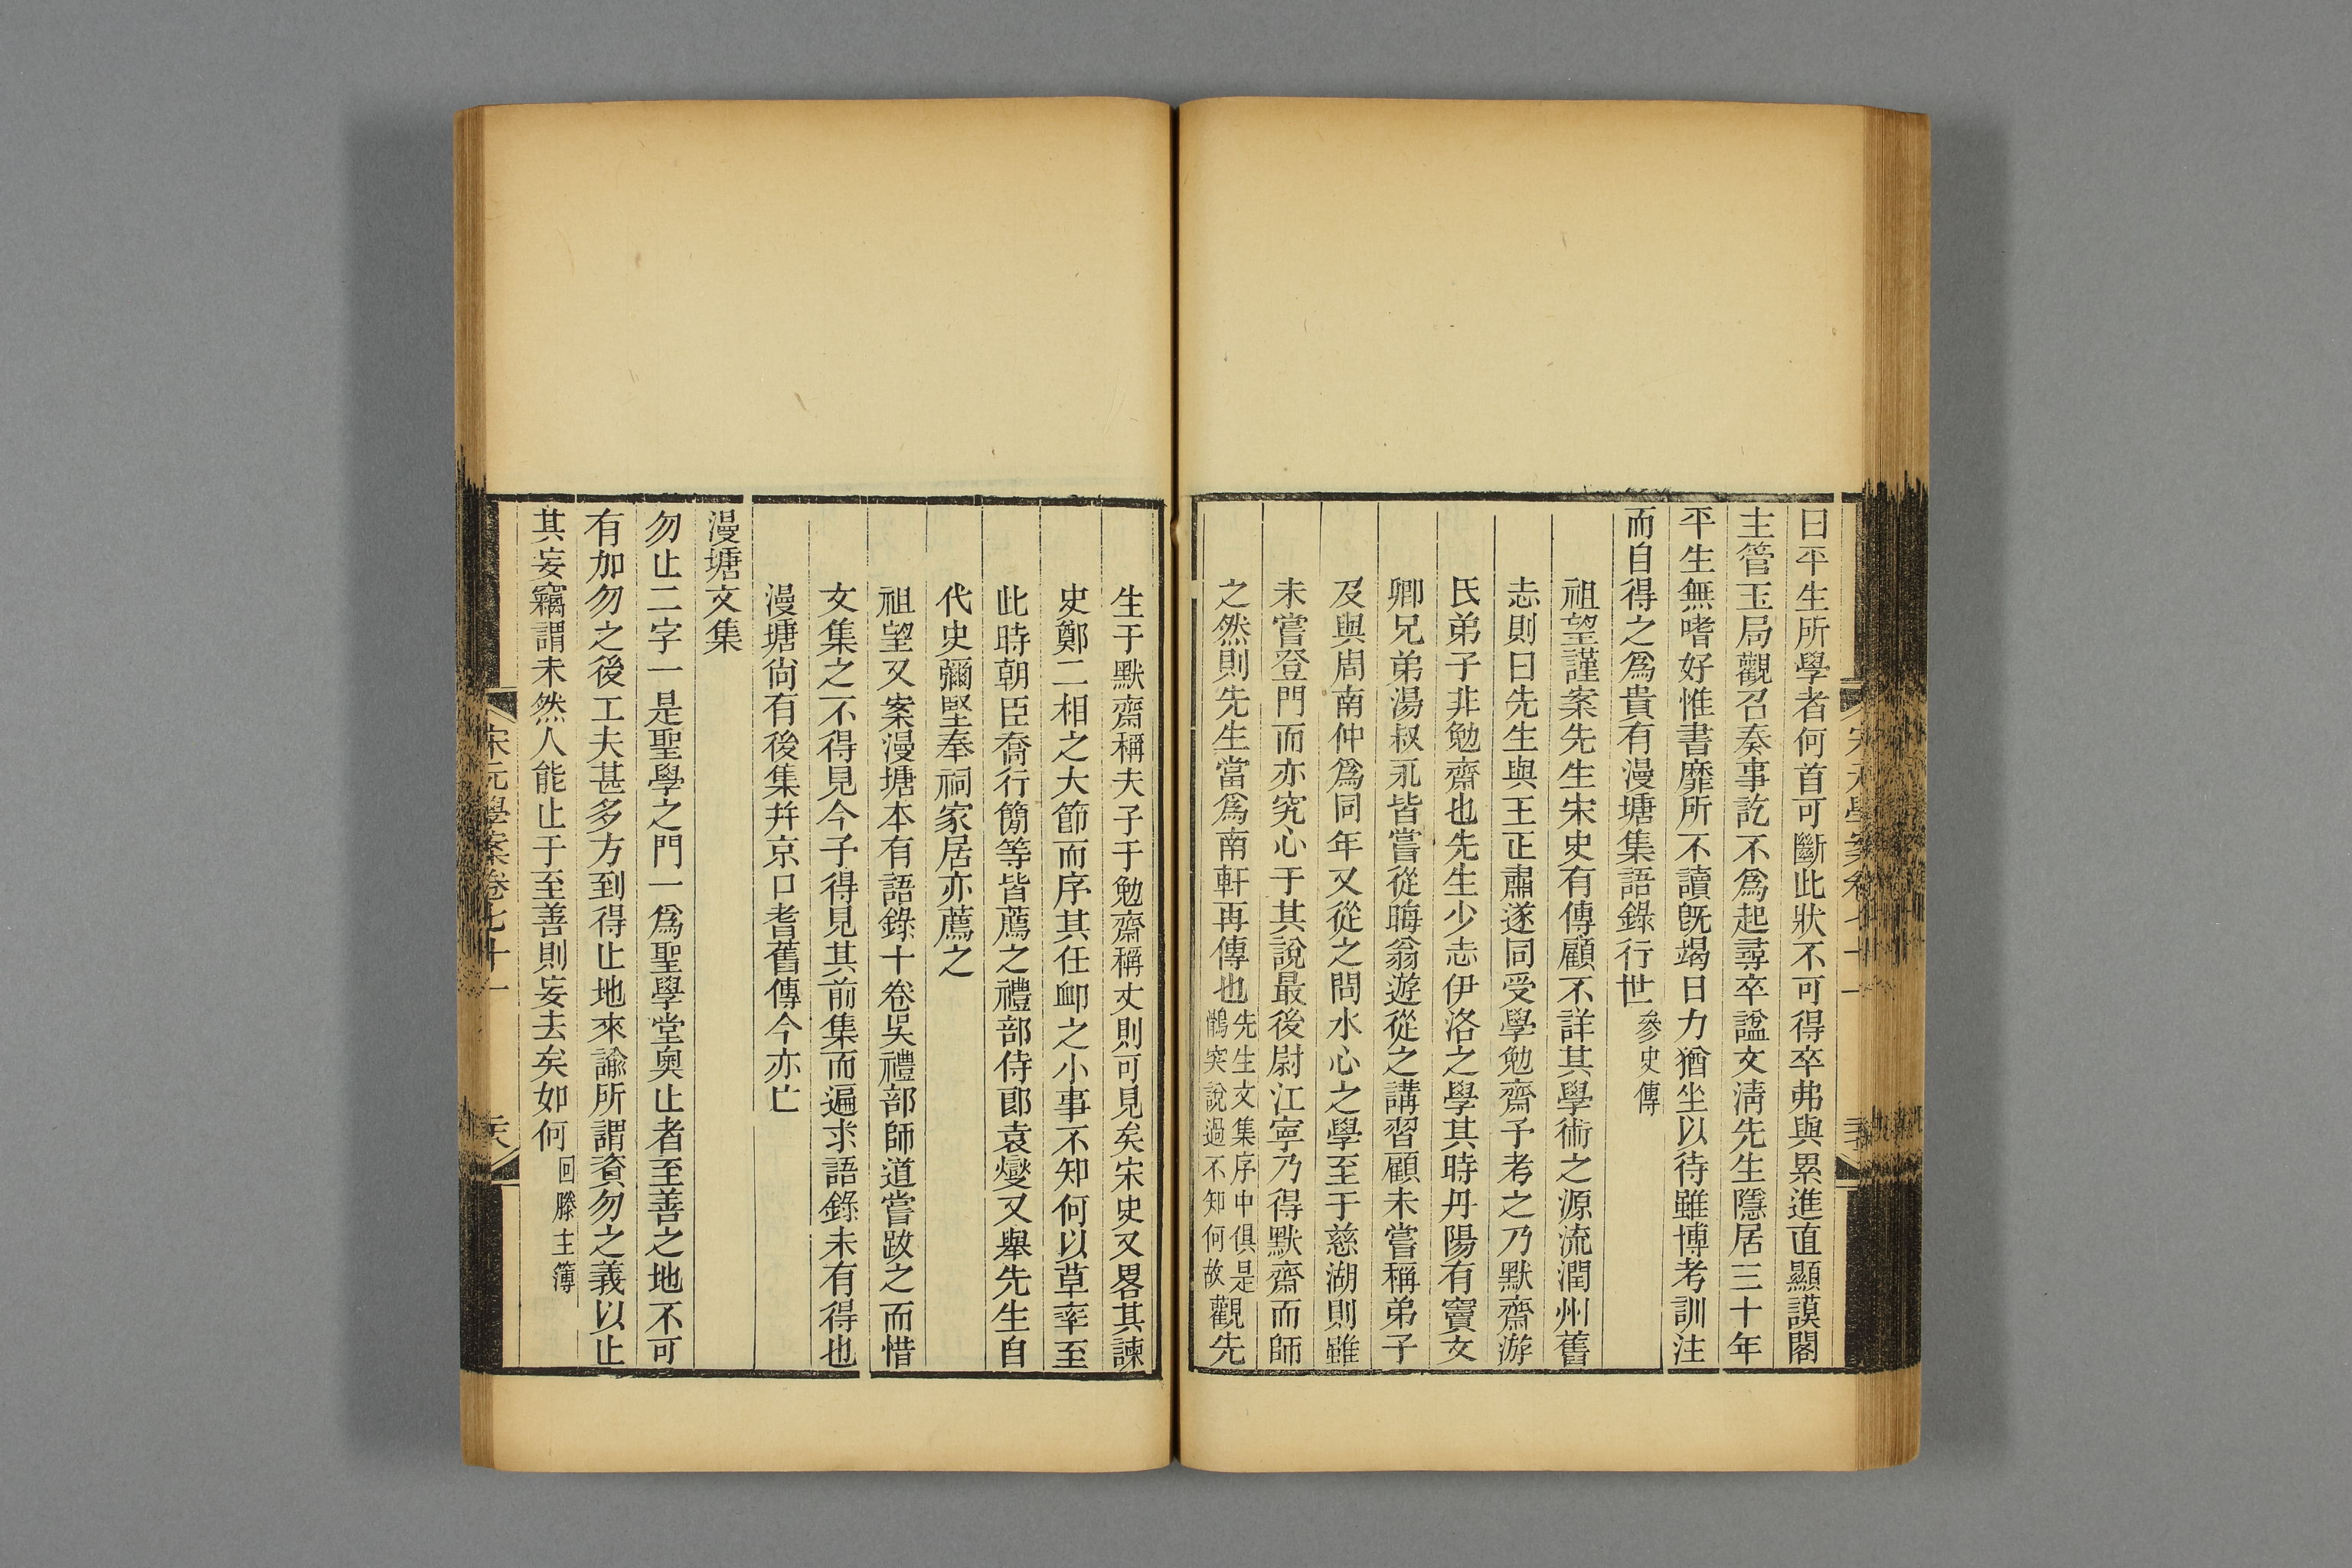 曰平生所學者何首可斷此狀不可得卒弗與累進直顯謨閣
主管玉局觀召奏事訖不爲起尋卒諡文淸先生隱居三十年
平生無嗜好惟書靡所不讀旣竭日力猶坐以待雖博考訓注
而自得之爲貴有漫塘集語錄行世參史傳
祖望謹案先生宋史有傳顧不詳其學術之源流潤州舊
志則曰先生與王正肅遂同受學勉齋予考之乃默齋游
氏弟子非勉齋也先生少志伊洛之學其時丹陽有竇文
卿兄弟湯叔永皆嘗從晦翁遊從之講習顧未嘗稱弟子
及與周南仲爲同年又從之問水心之學至于慈湖則雖
未嘗登門而亦究心于其說最後尉江寧乃得默齋而師
之然則先生當爲南軒再傳也先生文集序中俱是鶻突說過不知何故觀先
生于默齋稱夫子于勉齋稱丈則可見矣宋史又畧其諫
史鄭二相之大節而序其任卹之小事不知何以草率至
此時朝臣喬行簡等皆薦之禮部侍郎袁燮又舉先生自
代史彌堅奉祠家居亦薦之
祖望又案漫塘本有語錄十卷吳禮部師道嘗跋之而惜
文集之不得見今予得見其前集而遍求語錄未有得也
漫塘尙有後集幷京口耆舊傳今亦亡
漫塘文集
勿止二字一是聖學之門一爲聖學堂奧止者至善之地不可
有加勿之後工夫甚多方到得止地來諭所謂資勿之義以止
其妄竊謂未然人能止于至善則妄去矣如何回滕主簿
宋元學案卷七十一